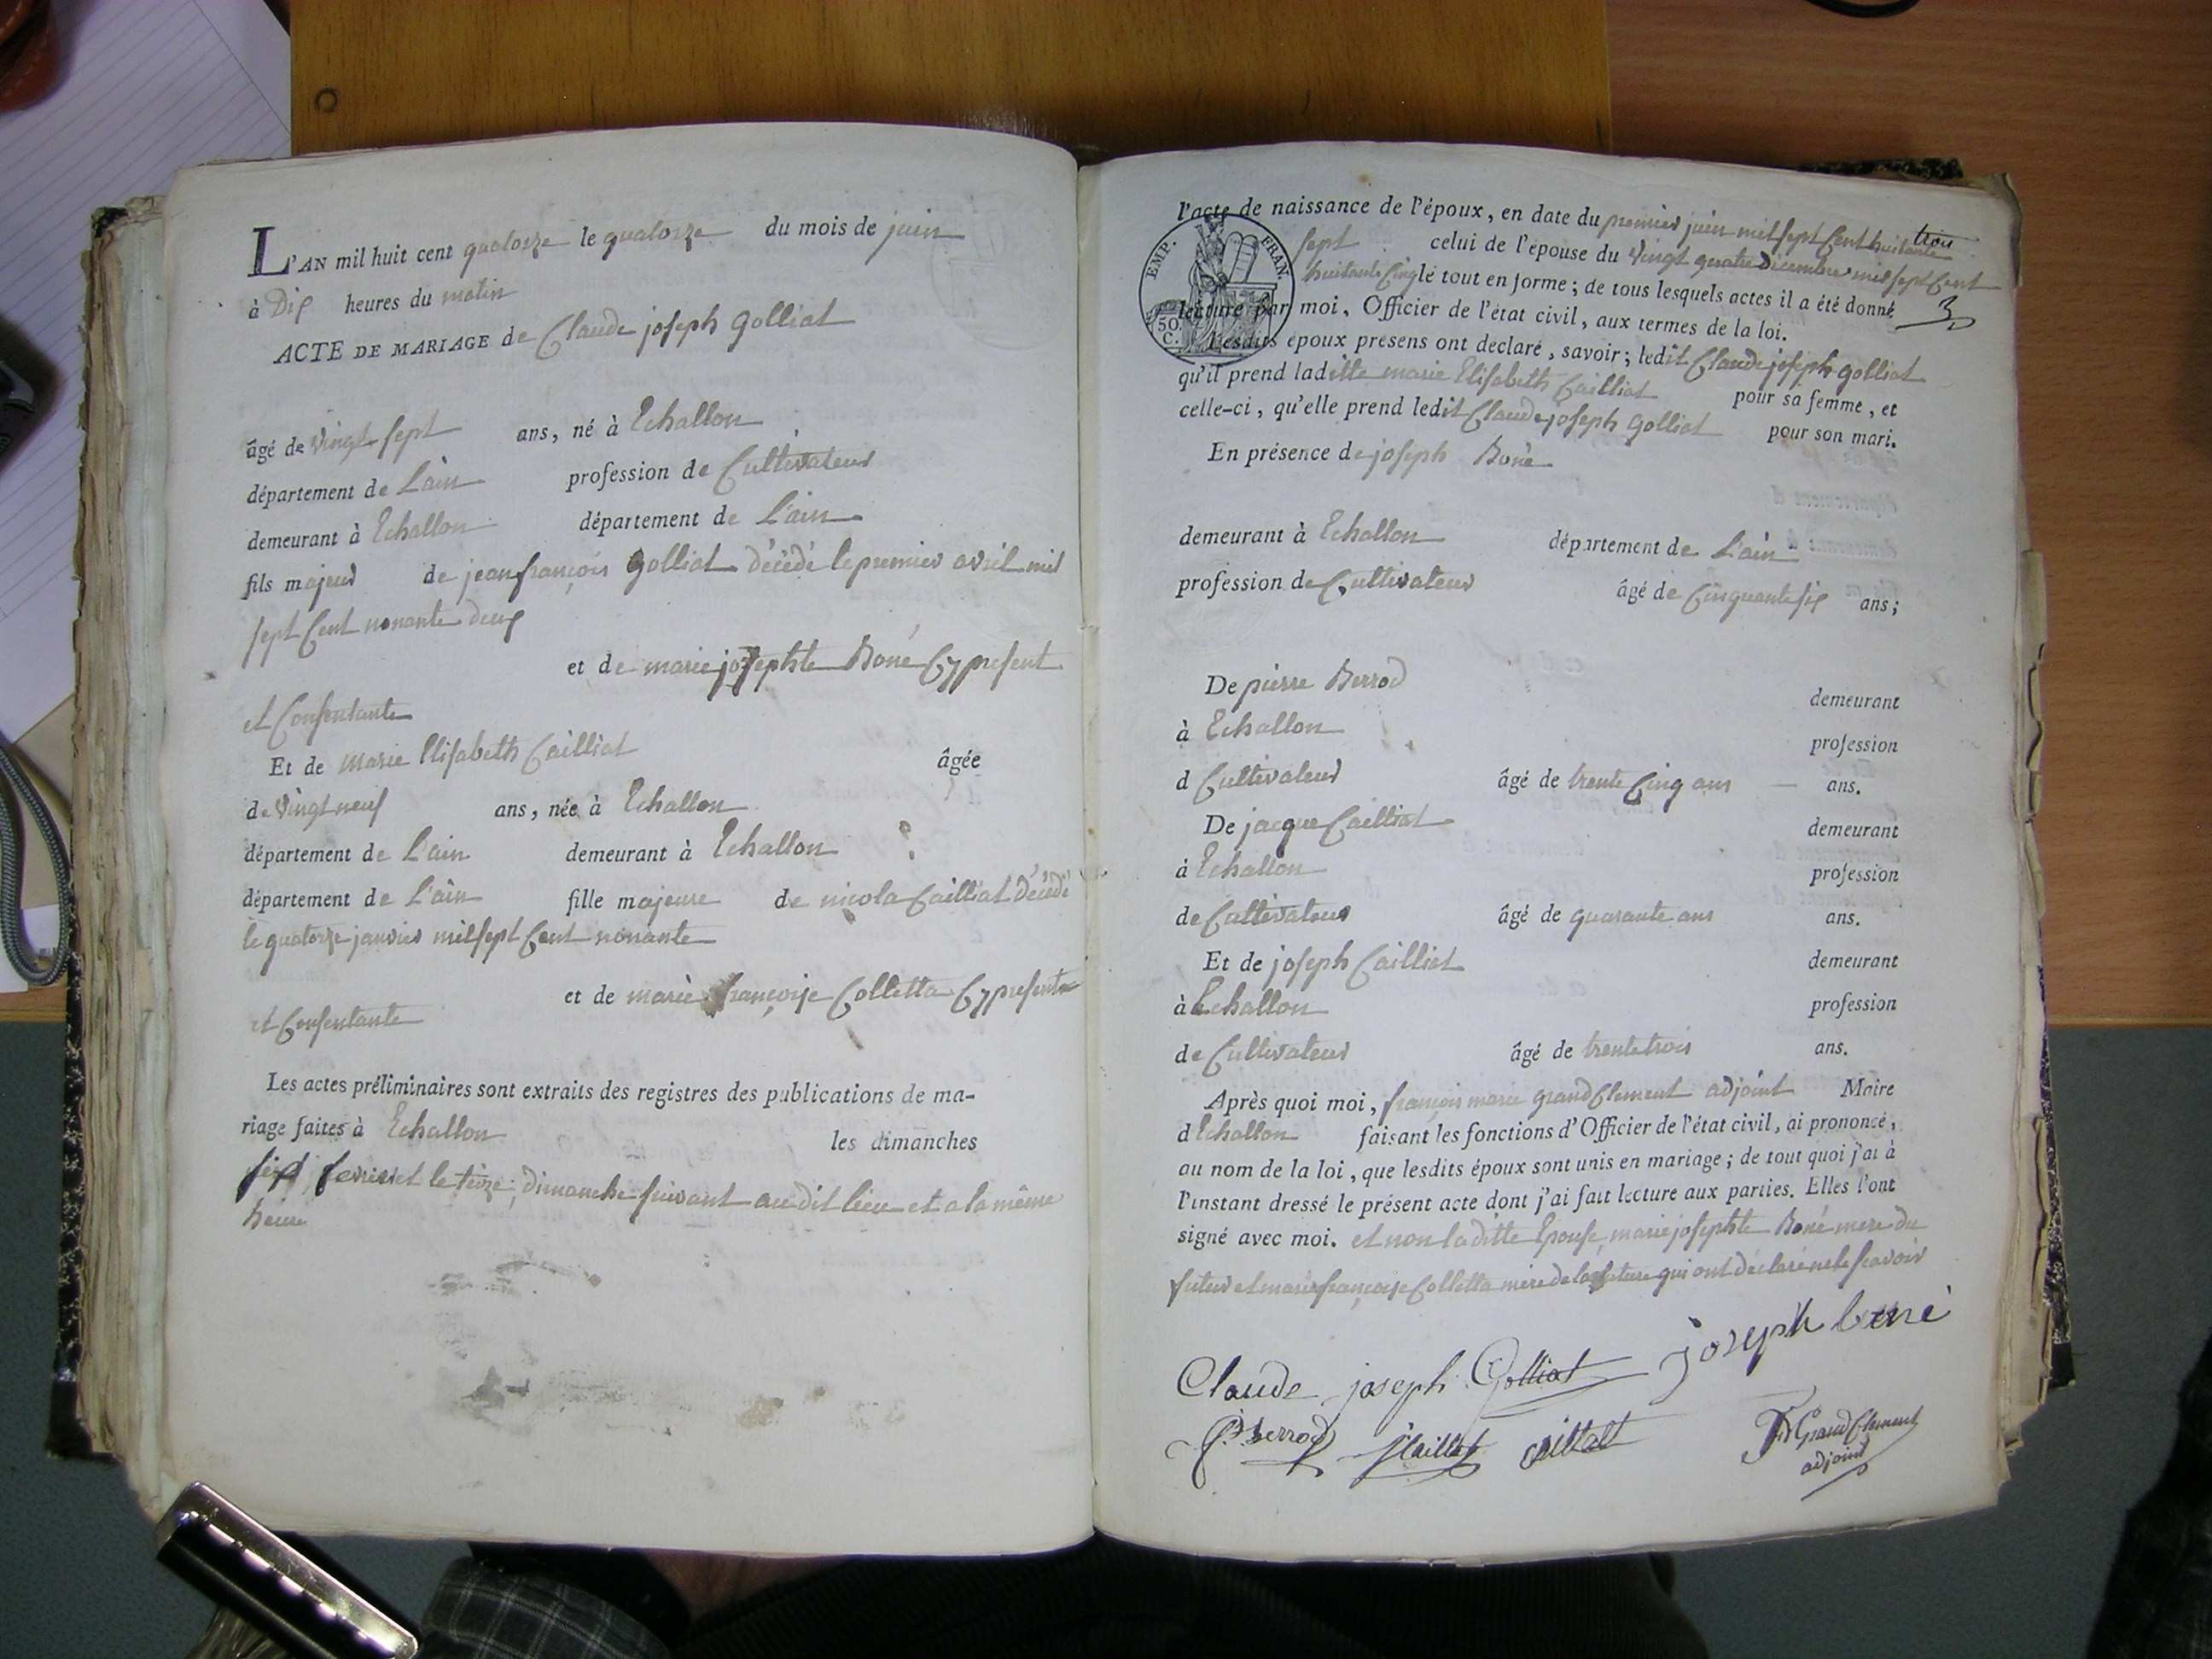 L'AN mil huit cent quatorze le quatorze du mois de juin
à Dix heures du matin
ACTE DE MARIAGE de Claude joseph Golliat
âgé de vingt sept ans, né à Echallon
département de L'ain profession de Cultivateur
demeurant à Echallon département de L'ain
fils majeur de jean françois Golliat décédé le premier avril mil
sept Cent nonante deux
et de marie josephte Boné Cy present
et Consentante
Et de Marie Elisabeth Cailliat âgée
de vingt neuf ans, née à Echallon
département de L'ain demeurant à Echallon
département de L'ain fille majeure de nicola Cailliat décédé
le quatorze janvier mil sept Cent nonante
et de marie françoise Colletta Cy presente
et Consentante
Les actes préliminaires sont extraits des registres des publications de ma-
riage faites à Echallon les dimanches
fevrier et le treize dimanche suivant au dit lieu et a la même
heure
l'acte de naissance de l'époux, en date du premier juin mil sept Cent huitante
sept celui de l'épouse du vingt quatre Décembre mil sept Cent
huitante Cinq le tout en forme; de tous lesquels actes il a été donné
lecture par moi, Officier de l'état civil, aux termes de la loi.
Lesdits époux présens ont déclaré, savoir; ledit Claude joseph golliat
qu'il prend laditte marie Elisabeth Cailliat pour sa femme, et
celle-ci, qu'elle prend ledit Claude joseph Golliat pour son mari.
En présence de joseph Boné
EMP. FRAN.
50.
C.
demeurant à Echallon département de L'ain
profession de Cultivateur âgé de Cinquante six ans;
De pierre Berrod demeurant
à Echallon profession
d Cultivateur âgé de trente Cinq ans ans.
De jacque Cailliat demeurant
à Echallon profession
de Cultivateur âgé de quarante ans ans.
Et de joseph Cailliat demeurant
à Echallon profession
de Cultivateur âgé de trente trois ans.
Après quoi moi, françois marie grandClement adjoint Maire
d Echallon faisant les fonctions d'Officier de l'état civil, ai prononcé,
au nom de la loi, que lesdits époux sont unis en mariage; de tout quoi j'ai à
l'instant dressé le présent acte dont j'ai fait lecture aux parties. Elles l'ont
signé avec moi. et non laditte Epouse, marie josephte Boné mere du
futur et marie françoise Colletta mère de la future qui ont déclaré ne le scavoir
Claude joseph Golliat joseph boné
P Berrod
GrandClement
adjoint